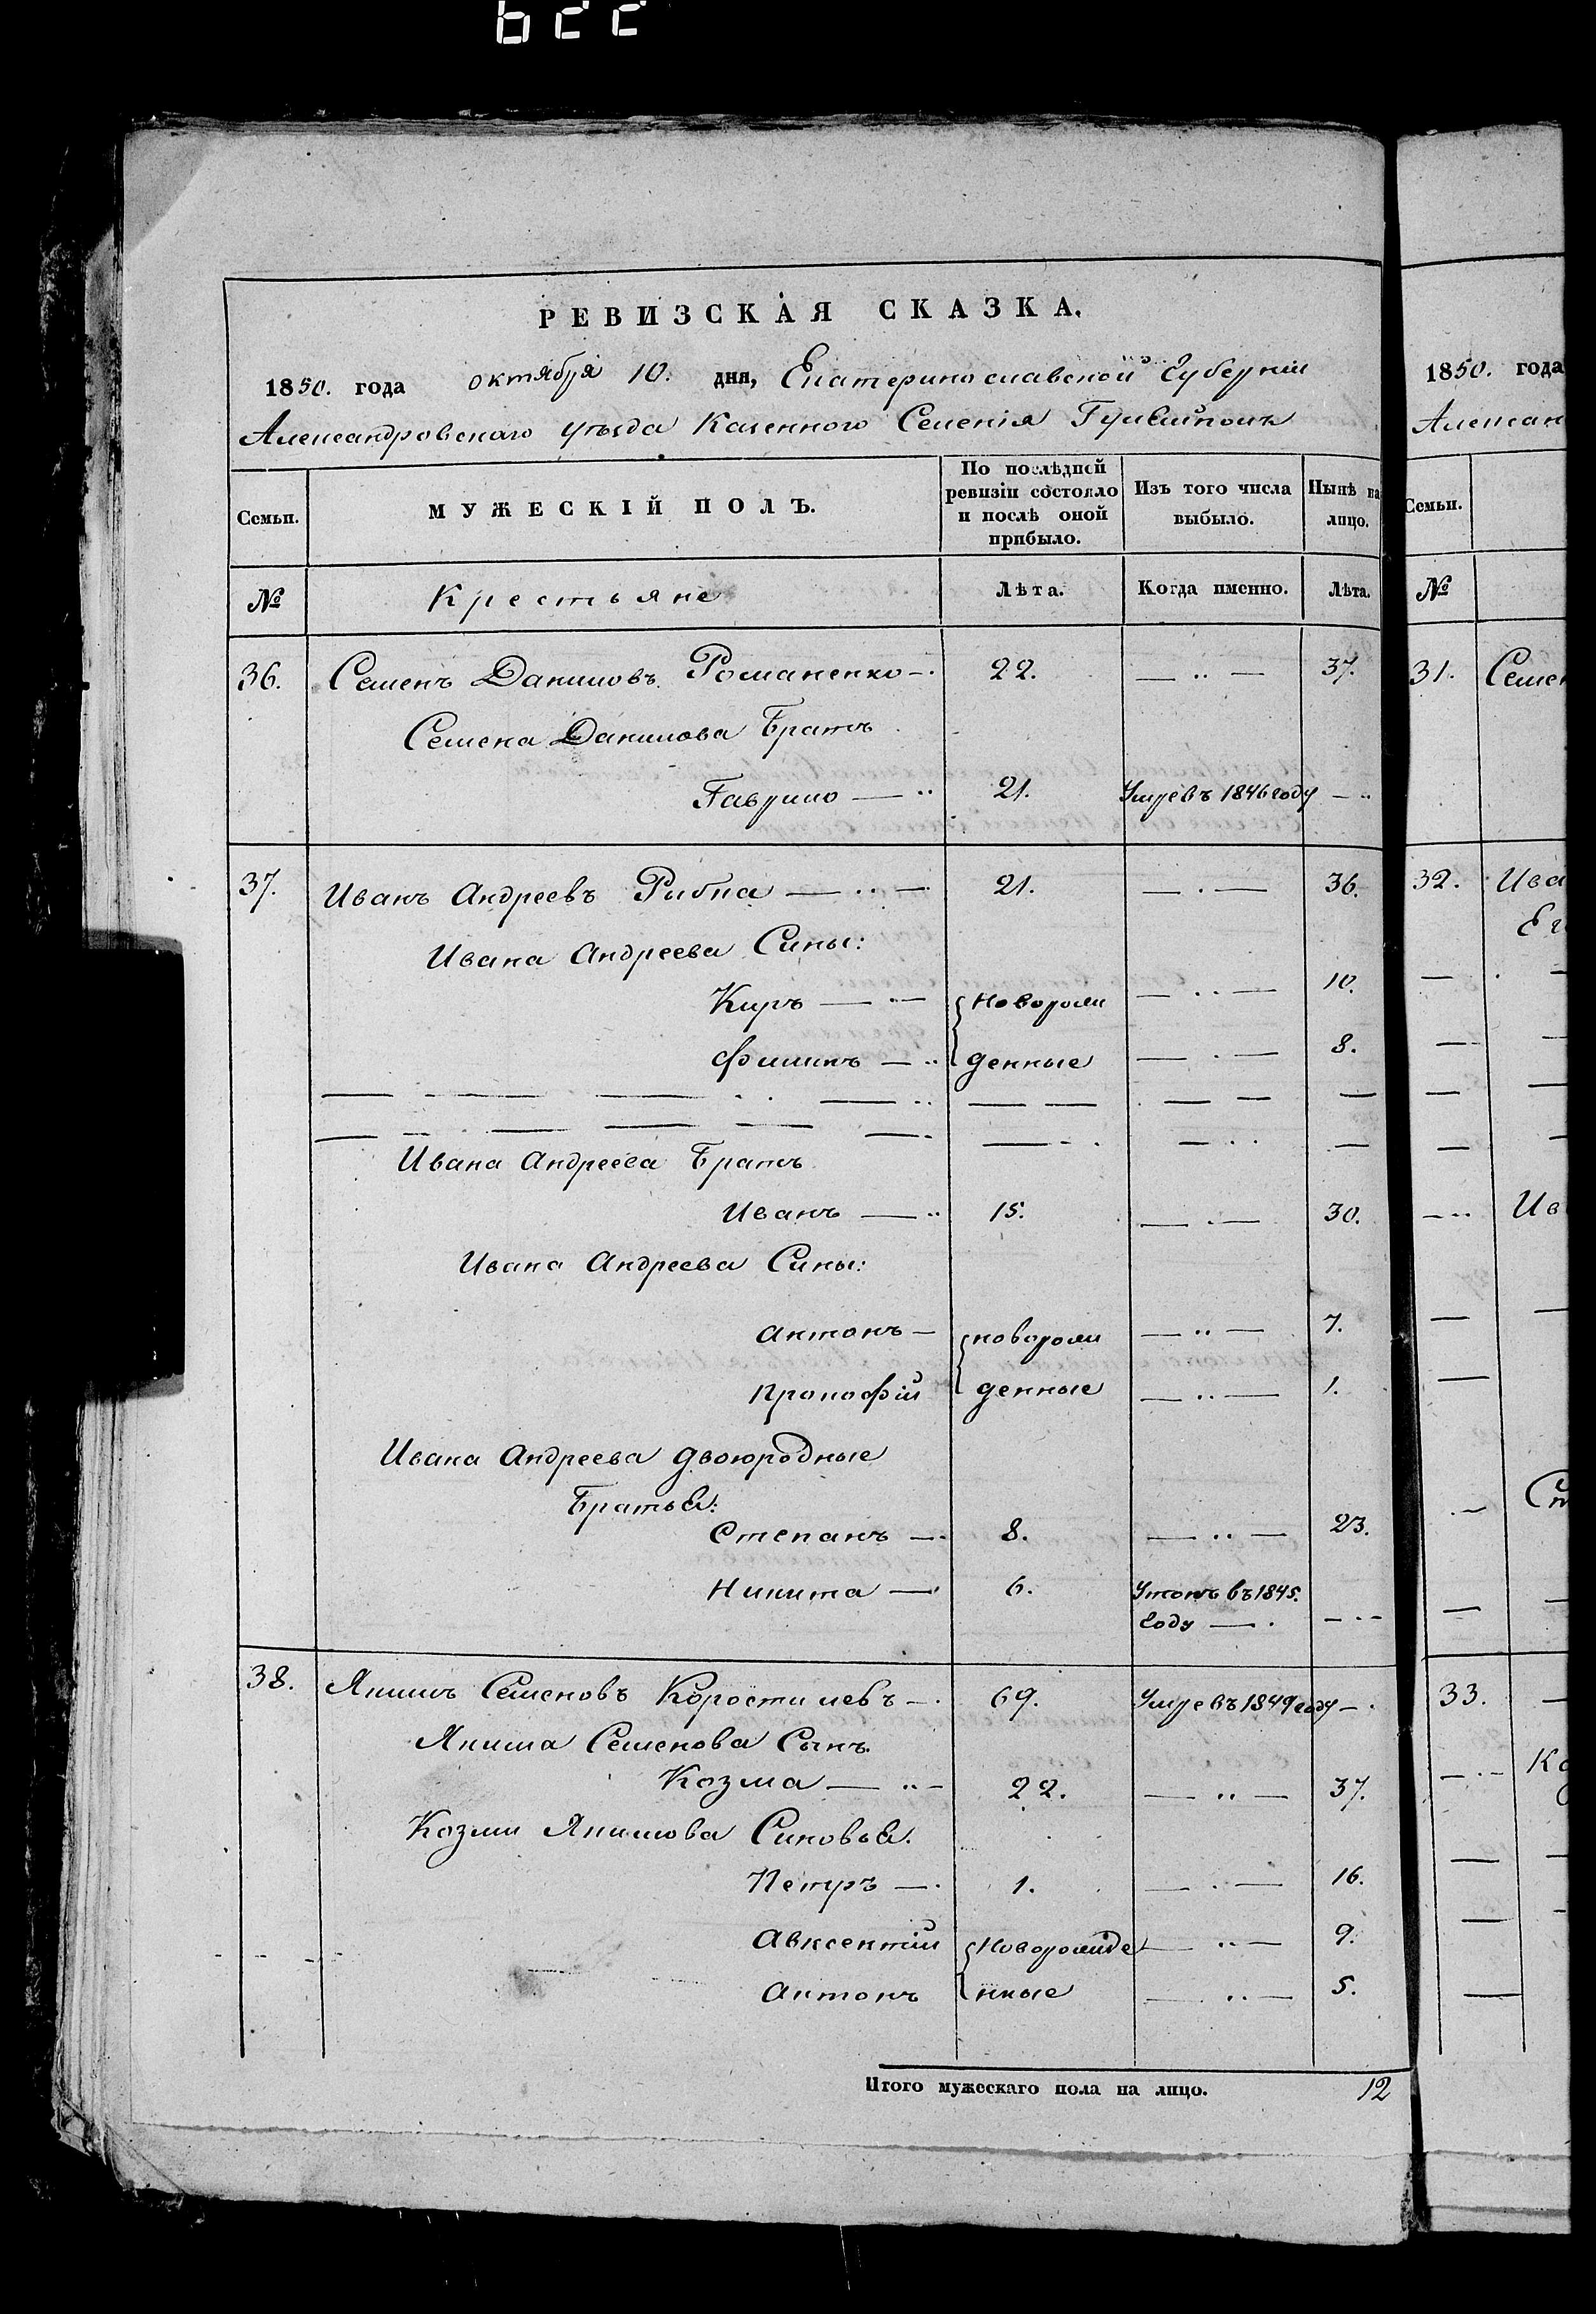 РЕВИЗСКАЯ СКАЗКА.
1850. года октября 10. дня, Екатеринославской Губерніи
Александровского уѣзда Казенного Селенія
Семьи. МУЖЕСКІЙ ПОЛЪ. По послѣдней ревизіи состояло и послѣ оной прибыло. Изъ того числа выбыло. Нынѣ на лицо.
№ Крестьяне Лѣта. Когда именно. Лѣта.
36. Семенъ Даниловъ Романенко 22. 37.
Семена Данилова Братъ
Гаврило 21. Умре въ 1846 году
37. Иванъ Андреевъ Рибка 21. 36.
Ивана Андреева Сины:
Киръ Новорож 10.
Филипъ денные 8.
Ивана Андреева Братъ
Иванъ 15. 30.
Ивана Андреева Сины:
Антонъ новорож 7.
Прокофій денные 1.
Ивана Андреева двоюродные
Братья:
Степанъ 8. 23.
Никита 6. Утопъ въ 1845.
году
38. Якимъ Семеновъ Коростилевъ 69. Умре въ 1849 году
Якима Семенова Сынъ
Козма 22. 37.
Козми Якимова Синовья.
Петръ 1. 16.
Авксентій Новорожде 9.
Антонъ нные 5.
Итого мужескаго пола на лицо. 12
1850. года
Александ
Семьи.
№
31. Семен
32. Ива
Ег
Ив
Ст
33.
Ко